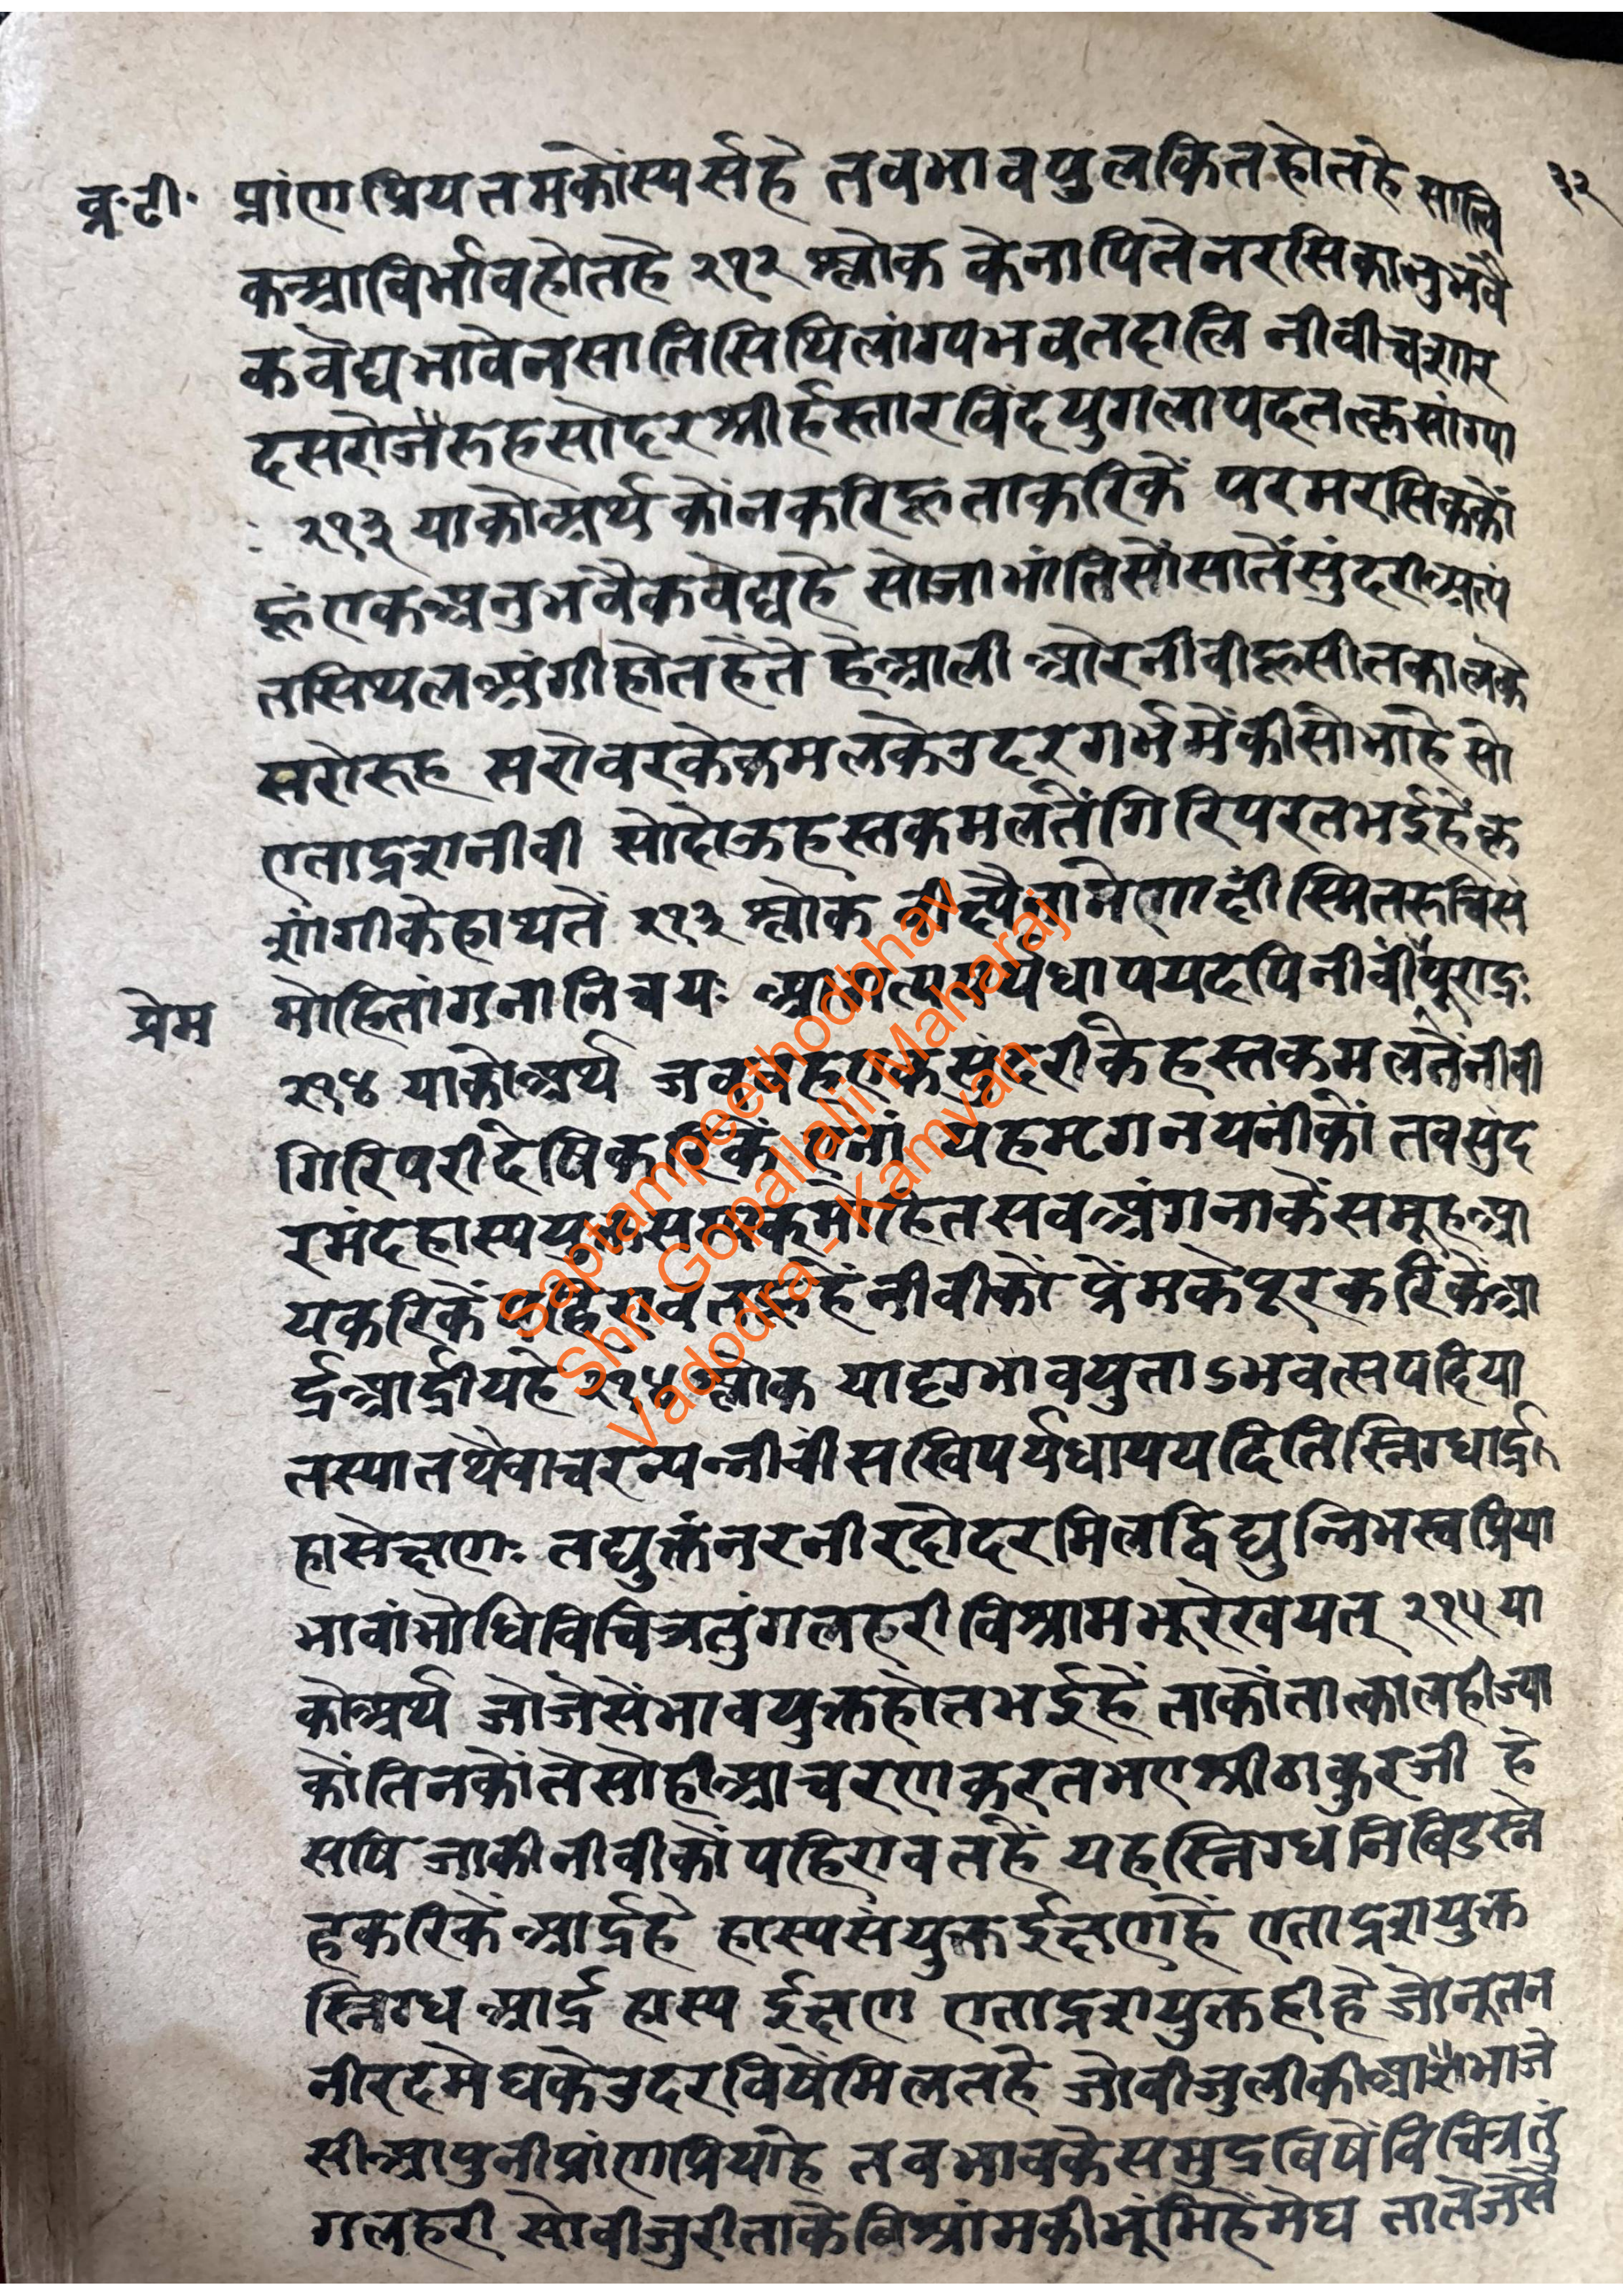 व्र॰टी॰ प्रांणप्रियतमकोंस्पर्सहै तवभावपुलकितहोतहै सात्वि ३२
कआविर्भावहोतहै २१२ श्लोक केनापितेनरसिकानुभवै
कवेद्यभावेनसातिसिथिलांग्यभवतदालि नीवीचशार
दसरोजरुहसोदरश्रीर्हस्तारविंदयुगलापदतत्कृसांग्या
२१३ याकोअर्थ कोंनकरिहूताकरिकें परमरसिककों
हूंएकअनुभवैकवेद्यहै सोजाभांतिसोंसातेंसुंदरीअत्यं
तसिथलअंगीहोतहैंते हेआली ओरनीवीहूसीतकालके
सरोरुह सरोवरकेकमलकेउदरगर्भमेंकीसोभाहै सो
एताद्रशनीवी सोदोऊहस्तकमलतेंगिरिपरतभईहैंकृ
शांगीकेहाथतें २१३ श्लोक वीक्ष्यैनामेणाक्षीं स्मितरुचिसं
प्रेम मोहितांगनानिचयः पर्यधापयदपिनीवींपूरार्द्रः
२१४ याकोअर्थ जबवहएकसुंदरीकेहस्तकमलतेंनीवी
गिरिपरीदेषिकरिकें एनां यहमृगनयनींकों तवसुंद
रमंदहास्ययुक्त मोहितसवअंगनाकेंसमूहआ
यकरिकें पहिरावत हैंनीवीकों प्रेंमकेपूरकरिकेंआ
र्द्रआर्द्रीयहै २१४ श्लोक यादृग्भावयुताऽभवत्सपदिया
तस्यातथैवाचरन्यन्नीवींसखिपर्यधापयदितिस्निग्धार्द्र
हासेक्षणः तद्युक्तंनरनीरदोदरमिलद्विद्युन्निभस्वप्रिया
भावांभोधिविचित्रतुंगलहरीविश्रामभूरेखयत् २१५ या
कोअर्थ जोजेसेंभावयुक्तहोतभईहैं ताकोंतात्कालहीज्या
कोंतिनकोंतेसोहीआचरणकरतभएश्रीठाकुरजी हे
सषि जाकीनीवीकोंपहिरावतहैं यहस्निग्धनिबिडस्ने
हकरिकेंआर्द्रहै हास्यसंयुक्तईक्षणहैं एताद्रशयुक्त
स्निग्ध आर्द्र हास्य ईक्षण एताद्रशयुक्तहीहै जोनूतन
नीरदमेघकेउदरविषेंमिलतहै जोवीजुलीकी सोभाजे
सीआपुनीप्रांणप्रियाहै तवभावकेसमुद्रविषेंविचित्रतुं
गलहरी सोवीजुरीताकेविश्रांमकीभूंमिहैंमेघ तातेजेसे
Saptampeethodbhav
Shri Gopallalji Maharaj
Vadodra - Kamvan